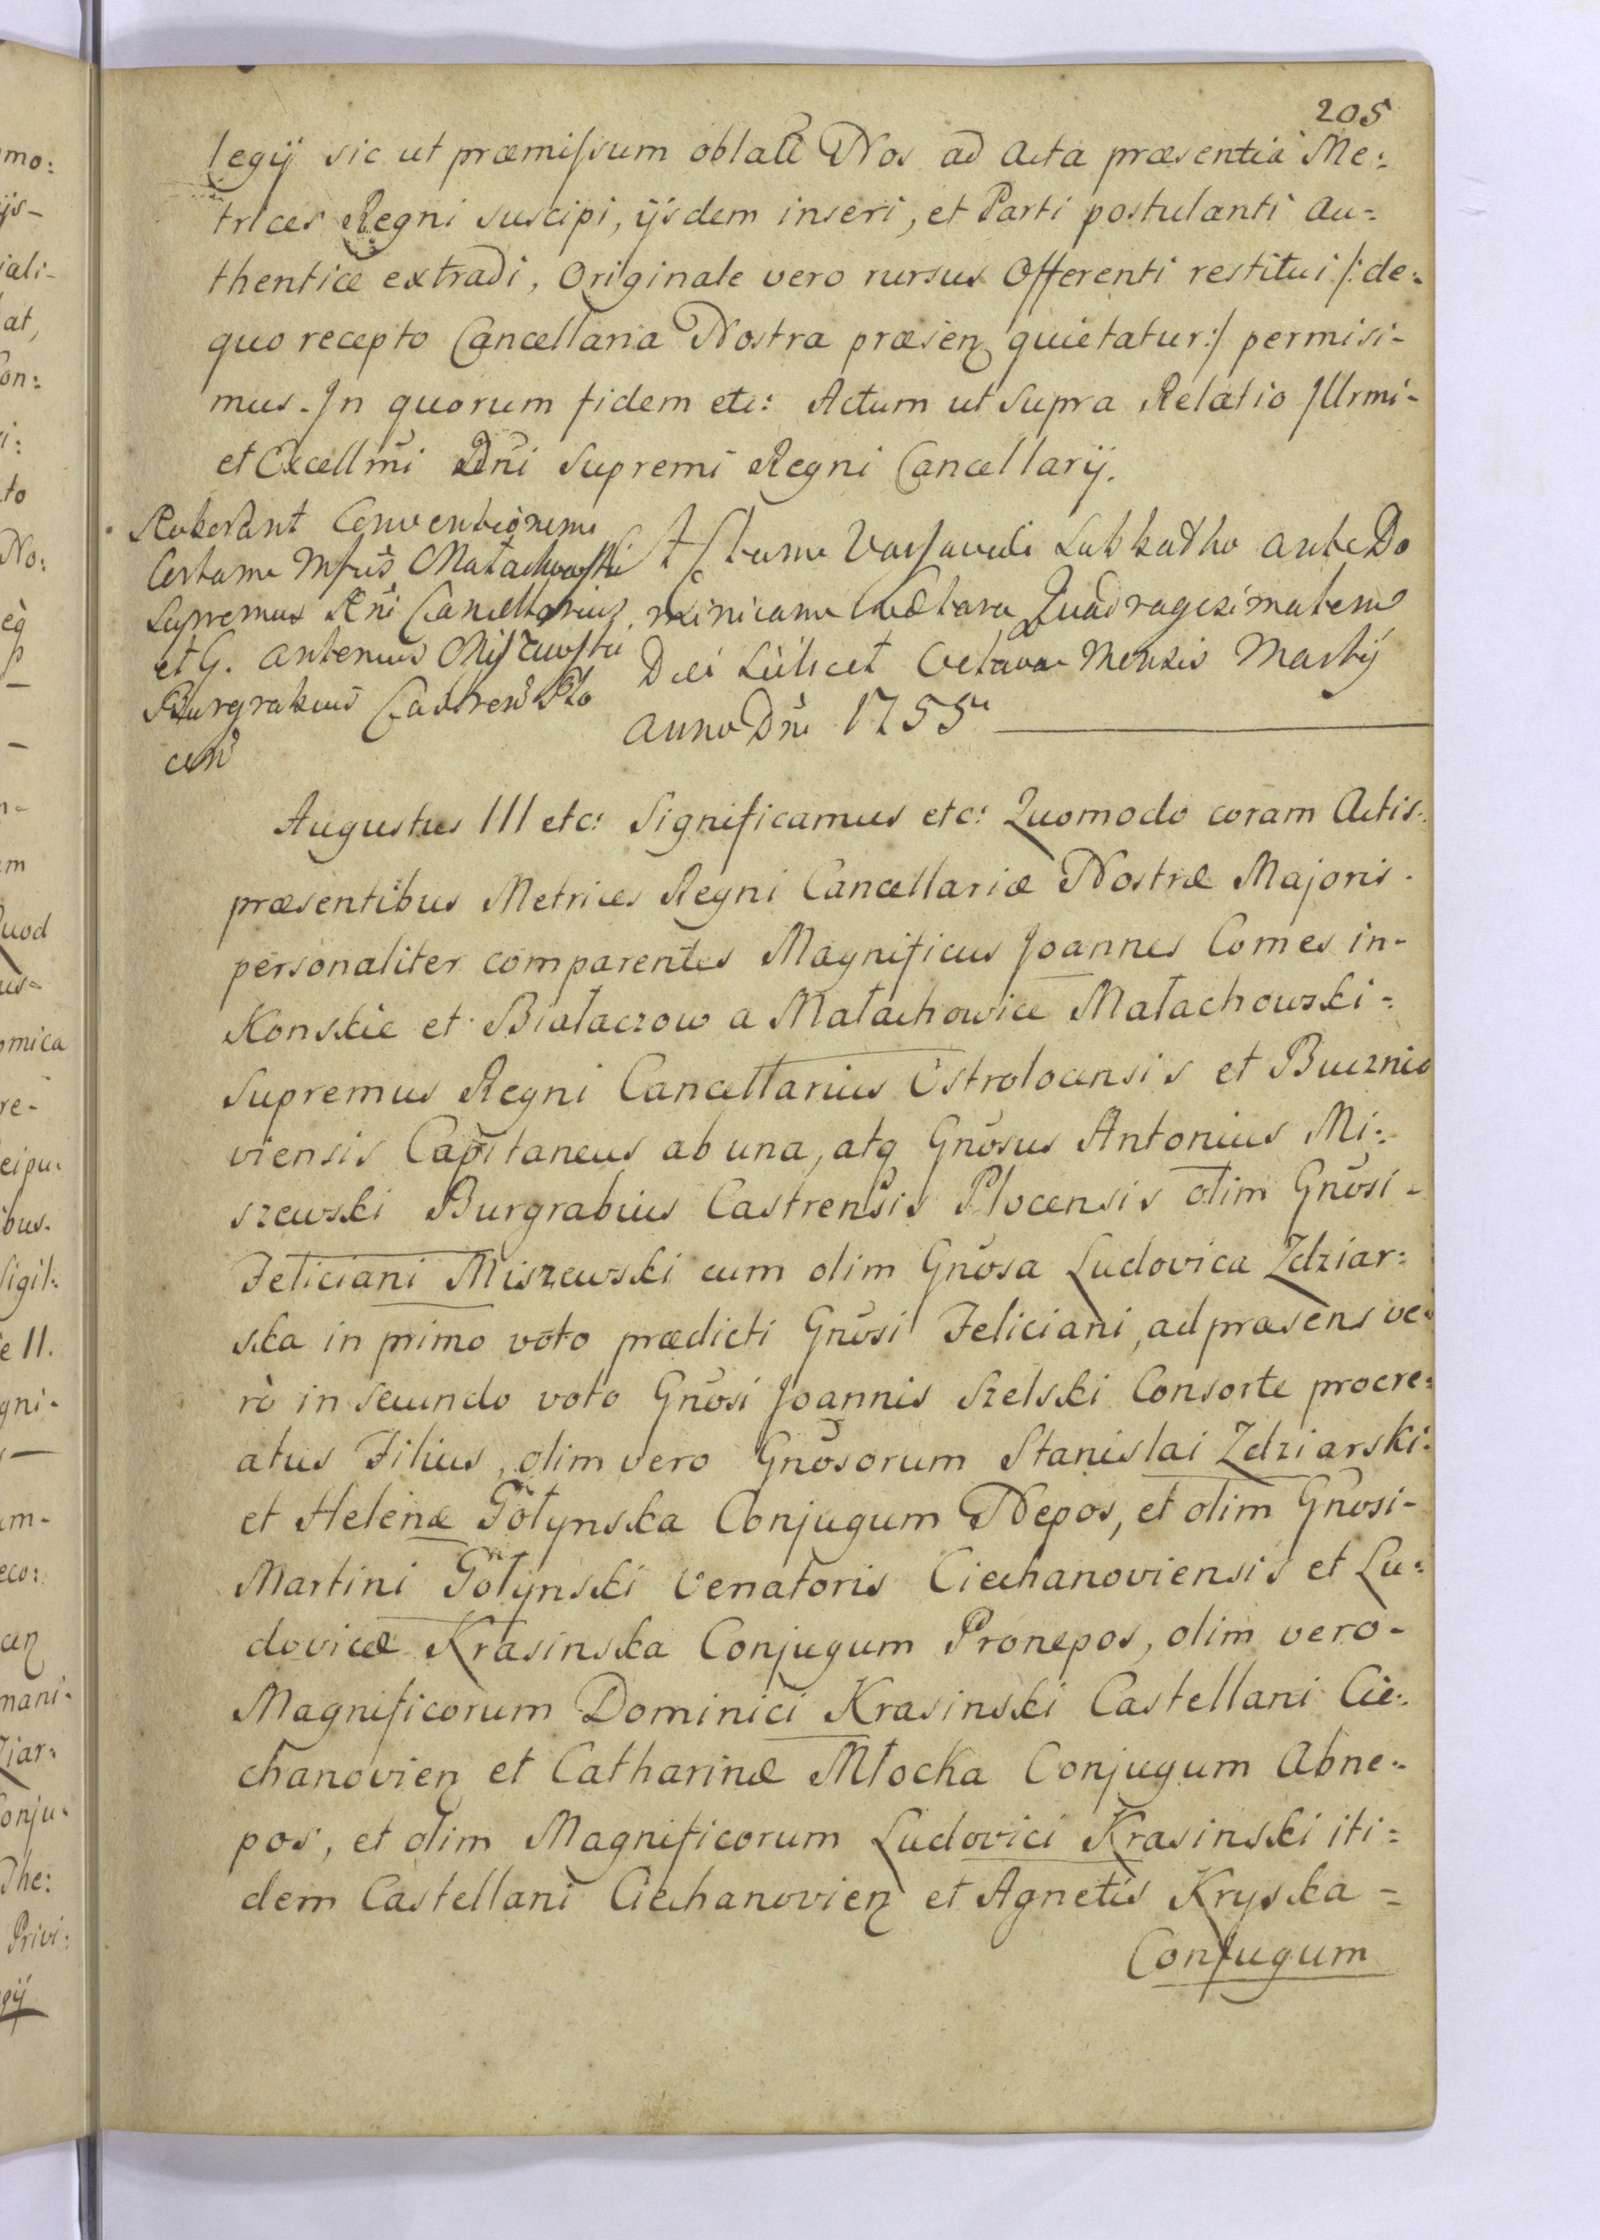 205
legij sic ut præmissum oblati Nos ad Acta præsentia Me:
trices Regni suscipi, ijsdem inseri, et Parti postulanti au=
thentice extradi, Originale vero rursus Offerenti restitui /: de=
quo recepto Cancellaria Nostra præsen quietatur :/ permisi-
mus. In quorum fidem etc: Actum ut Supra Relatio Illrmi-
et Excellmi Dni Supremi Regni Cancellarij.
Roborant Conventionem
Certam Mfus Małachowski
Supremus Rni Cancellarius
et G. Antonius Miszewski
Burgrabius Castren Plo
cen
Actum Varsaviæ Sabbatho ante Do
minicam Lætare Quadragesimalem
Die Scilicet Octava Mensis Martij
Anno Dni 1755
Augustus III etc: Significamus etc: Quomodo coram Actis
præsentibus Metrices Regni Cancellariæ Nostræ Majoris
personaliter comparentes Magnificus Joannes Comes in-
Konskie et Białaczow a Małachowice Małachowski=
Supremus Regni Cancellarius Ostrolocensis et Bucznio
viensis Capitaneus ab una, atq Gnosus Antonius Mi:
szewski Burgrabius Castrensis Plocensis olim Gnosi-
Feliciani Miszewski cum olim Gnosa Ludovica Zdziar:
ska in primo voto prædicti Gnosi Feliciani, ad præsens ve:
rò in secundo voto Gnosi Joannis Szelski Consorte procre:
atus Filius, olim vero Gnosorum Stanislai Zdziarski:
et Helenæ Gołynska Conjugum Nepos, et olim Gnosi-
Martini Gołynski Venatoris Ciechanoviensis et Lu:
dovicæ Krasinska Conjugum Pronepos, olim vero-
Magnificorum Dominici Krasinski Castellani Cie:
chanovien et Catharinæ Młocka Conjugum Abne:
pos, et olim Magnificorum Ludovici Krasinski iti=
dem Castellani Ciechanovien et Agnetis Kryska=
Conjugum